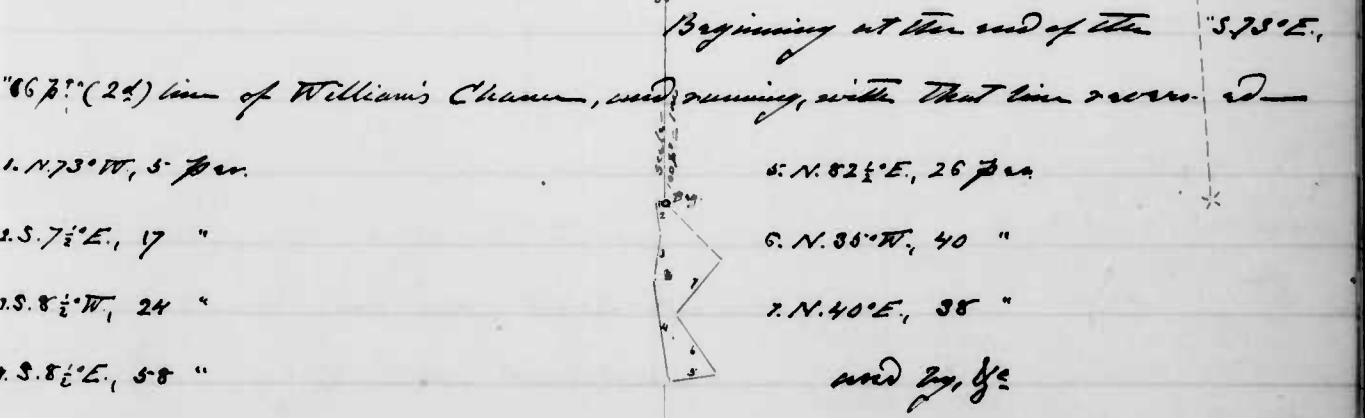 Beginning at the end of the "S.73°E.,
"86 ps." (2d) line of William's Chance, and running, with that line reversed
1. N.73°W., 5 per.
2. S.7½°E., 17 "
3. S.8½°W., 24 "
4. S.8½°E., 58 "
5. N.82½°E., 26 per
6. N.35°W., 40 "
7. N.40°E., 38 "
and by, &c
Beg.
2
3
4
5
6
7